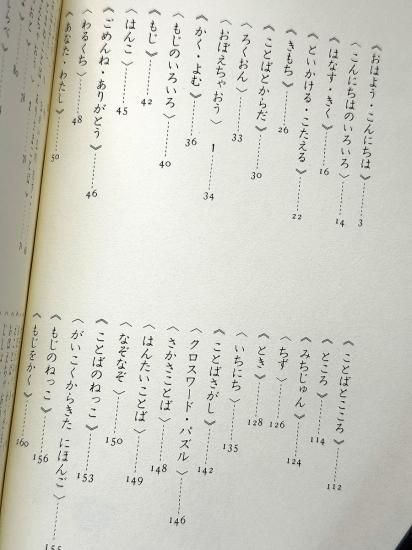 《おはよう・こんにちは》 3
〈こんにちはのいろいろ〉 14
《はなす・きく》 16
《といかける・こたえる》 22
《きもち》 26
《ことばとからだ》 30
〈ろくおん〉 33
〈おぼえちゃおう〉1 34
《かく・よむ》 36
〈もじのいろいろ〉 40
《もじ》 42
〈はんこ〉 45
《ごめんね・ありがとう》 46
〈わるくち〉 48
《あなた・わたし》 50
《ことばとこころ》 112
《ところ》 114
《みちじゅん》 124
〈ちず〉 126
《とき》 128
〈いちにち〉 135
《ことばさがし》 142
〈クロスワード・パズル〉 146
〈さかさことば〉 148
〈はんたいことば〉 149
〈なぞなぞ〉 150
《ことばのねっこ》 153
〈がいこくからきた にほんご〉 155
《もじのねっこ》 156
《もじをかく》 160